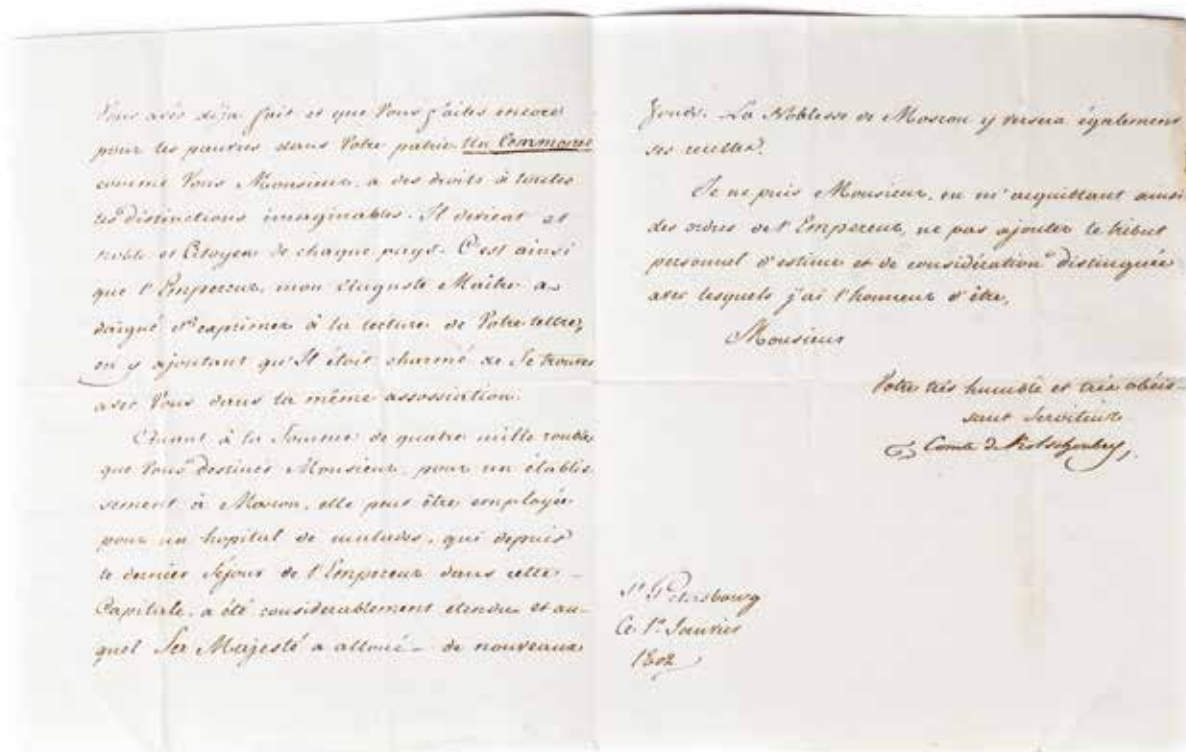 Vous avés déja fait et que Vous faites encore
pour les pauvres dans Votre patrie. Un Commercant
comme Vous Monsieur, a des droits à toutes
les distinctions imaginables. Il devient et
noble et Citoyen de chaque pays. C'est ainsi
que l'Empereur, mon Auguste Maître a
daigné s'exprimer à la lecture de Votre lettre,
en y ajoutant qu'Il étoit charmé de Se trouver
avec Vous dans la même assossiation.
Quant à la Somme de quatre mille roubles
que Vous destinés Monsieur, pour un établis
sement à Moscou, elle peut être employée
pour un hopital de malades, qui depuis
le dernier Séjour de l'Empereur dans cette
Capitale, a été considerablement étendu et au-
quel Sa Majesté a alloué de nouveaux
fonds. La Noblesse de Moscou y versera également
ses
Je ne puis Monsieur, en m'acquittant ainsi
des ordres de l'Empereur, ne pas ajouter le tribut
personnel d'estime et de considération distinguée
avec lesquels j'ai l'honneur d'être,
Monsieur
Votre très humble et très obéis-
sant Serviteur
Comte de Kotschoubey
St Petersbourg
Ce 1r Janvier
1802